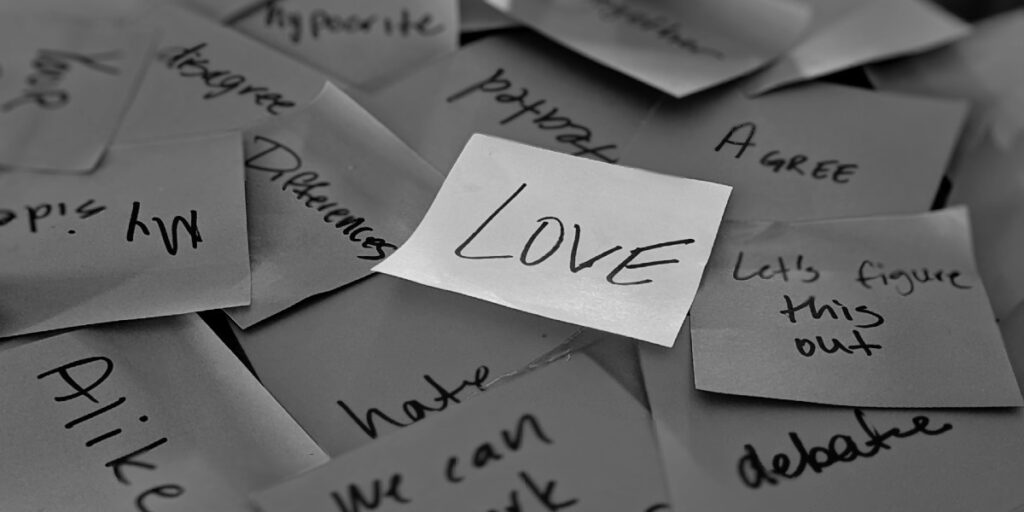 hypocrite
disagree
AGREE
DIFFERENCES
LOVE
My side
Let's figure
this
out
Alike
hate
We can
debate